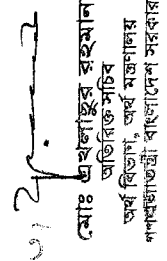 মোঃ এখলাছুর রহমান
অতিরিক্ত সচিব
অর্থ বিভাগ, অর্থ মন্ত্রণালয়
গণপ্রজাতন্ত্রী বাংলাদেশ সরকার